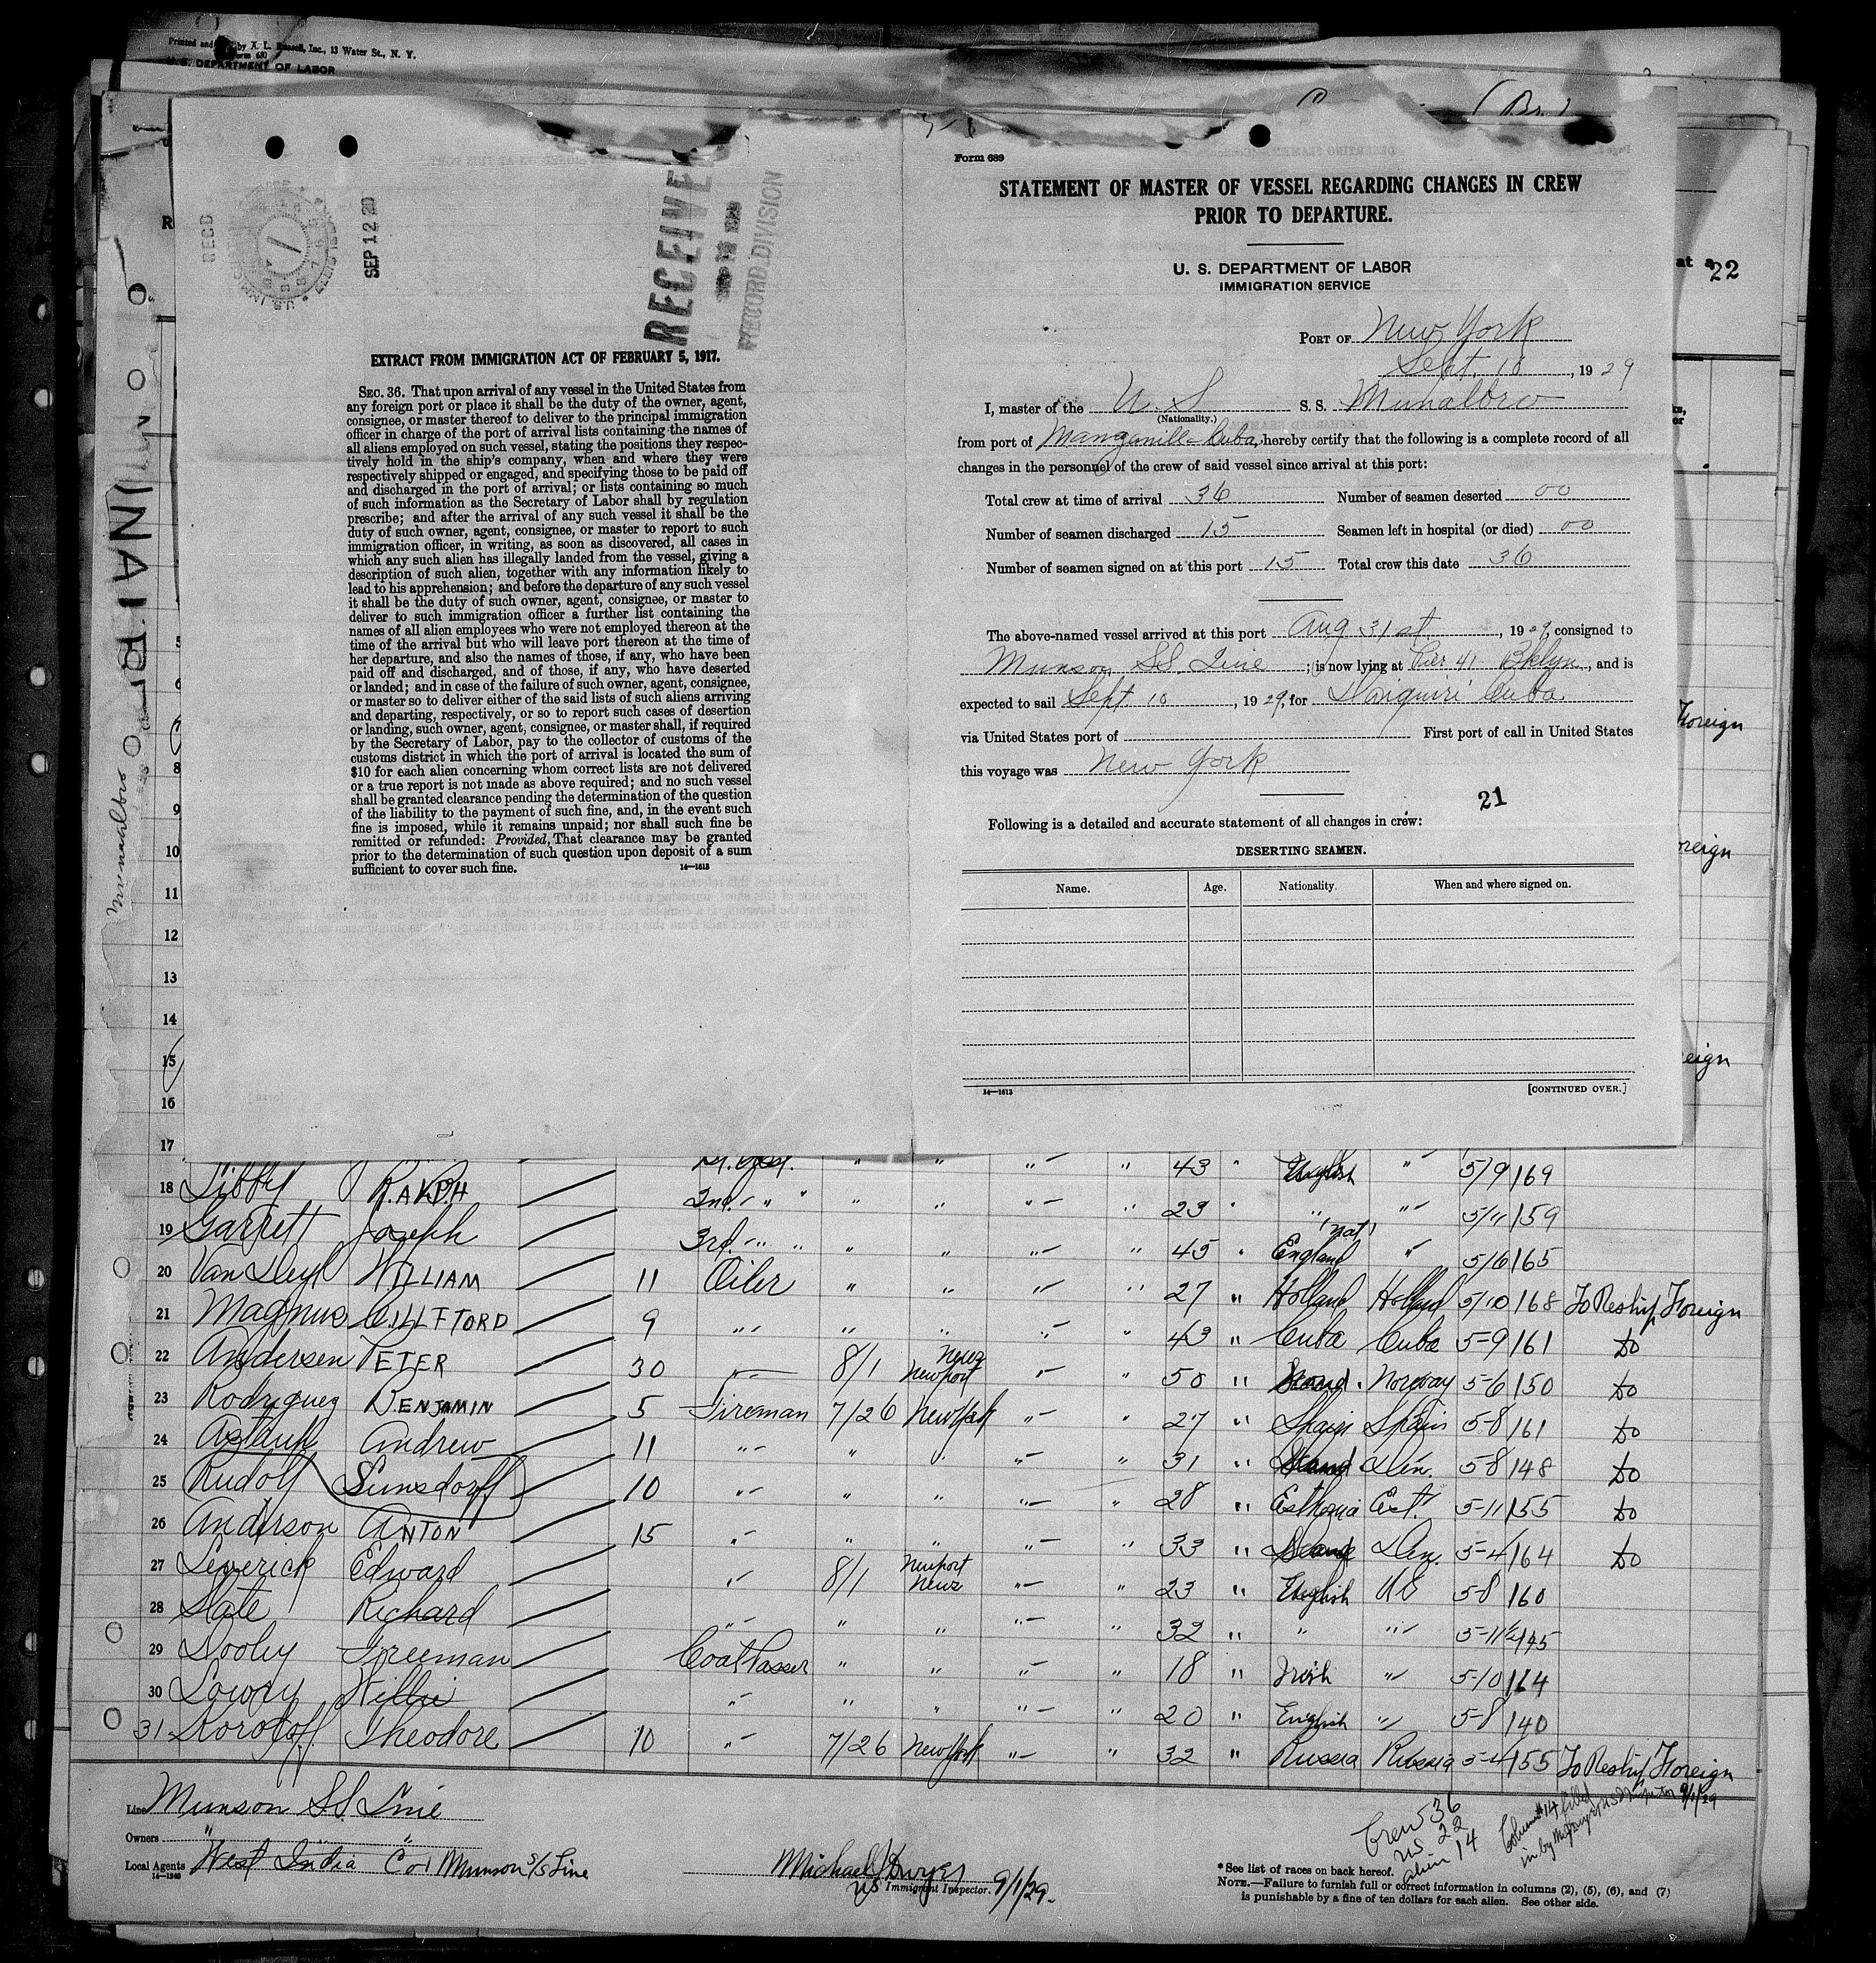 Printed and by X. L. Russell, Inc., 13 Water St., N. Y.
Form 680
U. S. DEPARTMENT OF LABOR
(Br.)
RECD
SEP 12 20
RECEIVED
RECORD DIVISION
EXTRACT FROM IMMIGRATION ACT OF FEBRUARY 5, 1917.
SEC. 36. That upon arrival of any vessel in the United States from
any foreign port or place it shall be the duty of the owner, agent,
consignee, or master thereof to deliver to the principal immigration
officer in charge of the port of arrival lists containing the names of
all aliens employed on such vessel, stating the positions they respec-
tively hold in the ship's company, when and where they were
respectively shipped or engaged, and specifying those to be paid off
and discharged in the port of arrival; or lists containing so much
of such information as the Secretary of Labor shall by regulation
prescribe; and after the arrival of any such vessel it shall be the
duty of such owner, agent, consignee, or master to report to such
immigration officer, in writing, as soon as discovered, all cases in
which any such alien has illegally landed from the vessel, giving a
description of such alien, together with any information likely to
lead to his apprehension; and before the departure of any such vessel
it shall be the duty of such owner, agent, consignee, or master to
deliver to such immigration officer a further list containing the
names of all alien employees who were not employed thereon at the
time of the arrival but who will leave port thereon at the time of
her departure, and also the names of those, if any, who have been
paid off and discharged, and of those, if any, who have deserted
or landed; and in case of the failure of such owner, agent, consignee,
or master so to deliver either of the said lists of such aliens arriving
and departing, respectively, or so to report such cases of desertion
or landing, such owner, agent, consignee, or master shall, if required
by the Secretary of Labor, pay to the collector of customs of the
customs district in which the port of arrival is located the sum of
$10 for each alien concerning whom correct lists are not delivered
or a true report is not made as above required; and no such vessel
shall be granted clearance pending the determination of the question
of the liability to the payment of such fine, and, in the event such
fine is imposed, while it remains unpaid; nor shall such fine be
remitted or refunded: Provided, That clearance may be granted
prior to the determination of such question upon deposit of a sum
sufficient to cover such fine. 14—1613
Form 689
STATEMENT OF MASTER OF VESSEL REGARDING CHANGES IN CREW
PRIOR TO DEPARTURE.
U. S. DEPARTMENT OF LABOR
IMMIGRATION SERVICE
PORT OF New York
Sept. 10, 1929
I, master of the U. S. S. S. Munalbro
(Nationality.)
from port of Manzanillo Cuba, hereby certify that the following is a complete record of all
changes in the personnel of the crew of said vessel since arrival at this port:
Total crew at time of arrival 36 Number of seamen deserted 00
Number of seamen discharged 15 Seamen left in hospital (or died) 00
Number of seamen signed on at this port 15 Total crew this date 36
The above-named vessel arrived at this port Aug 31st, 1929, consigned to
Munson SS. Line; is now lying at Pier 41 Bklyn, and is
expected to sail Sept 10, 1929, for Daiquiri Cuba
via United States port of First port of call in United States
this voyage was New York
21
Following is a detailed and accurate statement of all changes in crew:
DESERTING SEAMEN.
Name. Age. Nationality. When and where signed on.
14—1613 [CONTINUED OVER.]
at a
22
Foreign
oreign
eign
Munalbro
5
6
7
8
9
10
11
12
13
14
15
16
17 43 " English " 5/9 169
18 Libby RALPH 2nd " " " " " " 23 " " " 5/11 159
19 Garrett Joseph 3rd " " " " " " 45 " England (nat) " 5/6 165
20 Van Deyl WILLIAM 11 Oiler " " " " 27 " Holland Holland 5/10 168 To Reship Foreign
21 Magnus CILLFTORD 9 " " " " " 43 " Cuba Cuba 5-9 161 Do
22 Andersen PETER 30 " 8/1 Newport News " " 50 " Scand. Norway 5-6 150 Do
23 Rodriguez BENJAMIN 5 Fireman 7/26 New York " " 27 " Spain Spain 5-8 161 Do
24 Andrew 11 " " " " " 31 " Scand Den. 5-8 148 Do
25 Rudolf Sunsdorff 10 " " " " " 28 " Esthonia Est. 5-11 155 Do
26 Anderson ANTON 15 " " " " " 33 " Scand Den. 5-4 164 Do
27 Leverick Edward " 8/1 Newport News " " 23 " English US 5-8 160
28 Slate Richard " " " " " 32 " " " 5-11½ 145
29 Dooley Freeman Coal Passer " " " " 18 " Irish " 5-10 164
30 Lowry Willie " " " " " 20 " English " 5-8 140
31 Korotoff Theodore 10 " 7/26 New York " " 32 " Russia Russia 5-4 155 To Reship Foreign
Line Munson S.S. Line
Owners " " "
Local Agents West India Co Munson S/S Line
14—1240
Michael J Dwyer
US Immigrant Inspector. 9/1/29.
Crew 36
US 22
alien 14
Column #14 filled
in by US Inspector 9/1/29
*See list of races on back hereof.
NOTE.—Failure to furnish full or correct information in columns (2), (5), (6), and (7)
is punishable by a fine of ten dollars for each alien. See other side.